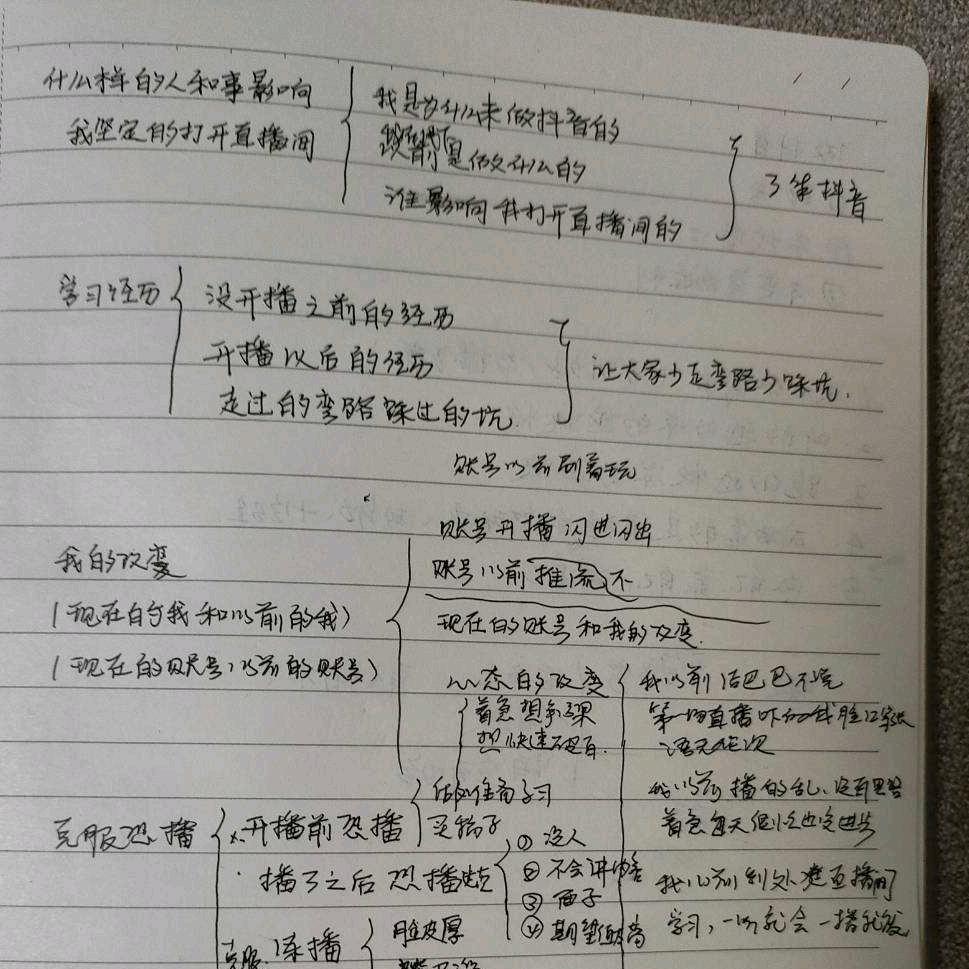 什么样的人和事影响
我坚定的打开直播间
我是为什么来做抖音的
以前是做什么的
谁影响我打开直播间的
了第抖音
学习经历
没开播之前的经历
开播以后的经历
走过的弯路踩过的坑
让大家少走弯路少踩坑.
账号以前刷着玩
账号开播闪进闪出
账号以前推流不
现在的账号和我的改变.
我的改变
(现在的我和以前的我)
(现在的账号,以前的账号)
心态的改变
着急想拿结果
想快速
我以前结巴巴不说
第一场直播吓的我脸红
语无伦次
我以前播的乱、没有思路
着急每天
我以前到处进直播间
学习,一听就会一播就废
克服恐播
开播前恐播
做好准备学习
买稿子
播了之后恐播
① 没人
② 不会讲
③ 面子
④ 期望值高
克服.练播
脸皮厚